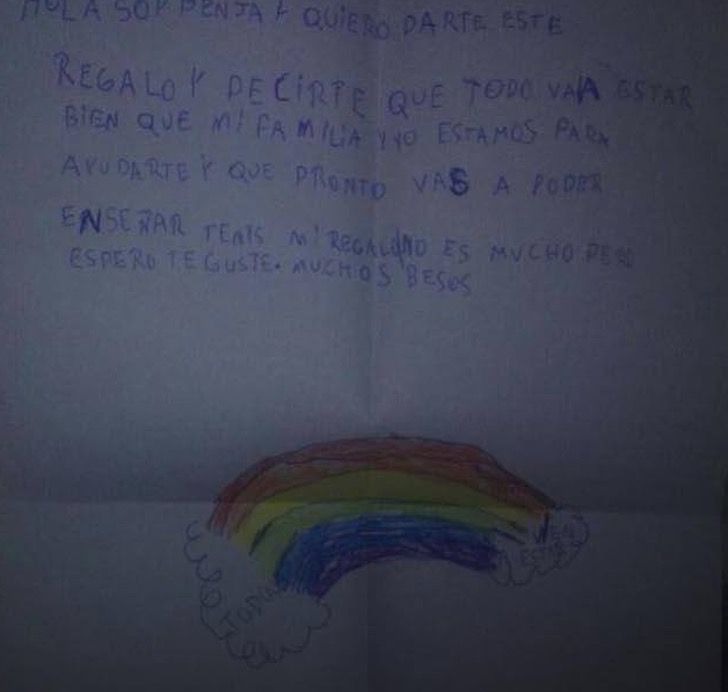 HOLA SOY BENJA Y QUIERO DARTE ESTE
REGALO Y DECIRTE QUE TODO VAA ESTAR
BIEN QUE MI FAMILIA Y YO ESTAMOS PARA
AYUDARTE Y QUE PRONTO VAS A PODER
ENSEÑAR TENIS MI REGALO NO ES MUCHO PERO
ESPERO TE GUSTE. MUCHOS BESOS
TODO